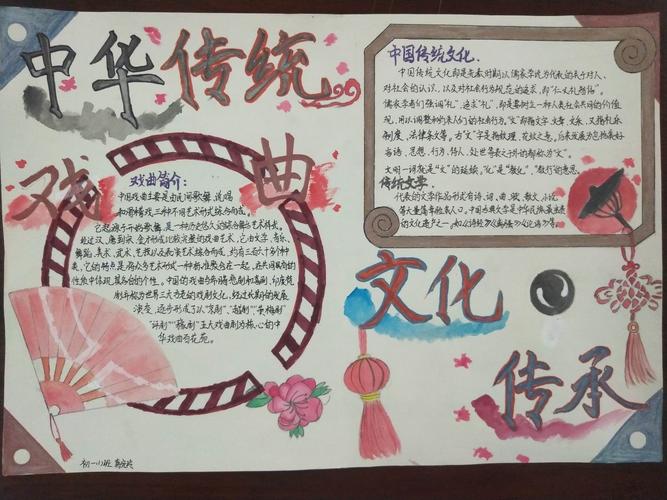 中华传统
戏曲
戏曲简介：
中国戏曲主要是由民间歌舞、说唱
和滑稽戏三种不同艺术形式综合而成。
它起源于原始歌舞，是一种历史悠久的综合舞台艺术样式。
经过汉、唐到宋、金才形成比较完整的戏曲艺术，它由文学、音乐、
舞蹈、美术、武术、杂技以及表演艺术综合而成，约有三百六十多个种
类。它的特点是将众多艺术形式以一种标准聚合在一起，在共同具有的
性质中体现其各自的个性。中国的戏曲与希腊悲剧和喜剧、印度梵
剧并称为世界三大古老的戏剧文化，经过长期的发展
演变，逐步形成了以“京剧”“越剧”“黄梅戏”
“评剧”“豫剧”五大戏曲剧种为核心的中
华戏曲百花苑。
中国传统文化.
中国传统文化即是先秦时期以儒家学说为代表的关于对人、
对社会的认识，以及对社会行为规范的追求，即“仁义礼智信”。
儒家学者们强调“礼”，追求“礼”，即是要树立一种人类社会共同的价值
观，用以调整和约束人们的社会行为。“文”即指文字、文章、文采，又指礼乐
制度、法律条文等。
“文”字是指纹理、花纹之意。
文明一词就是“文”的延续，“化”是“教化”、“教行”的意思。
传统文学
代表的文学作品形式有诗、词、曲、赋、散文、小说
文化
传承
初一(1)班